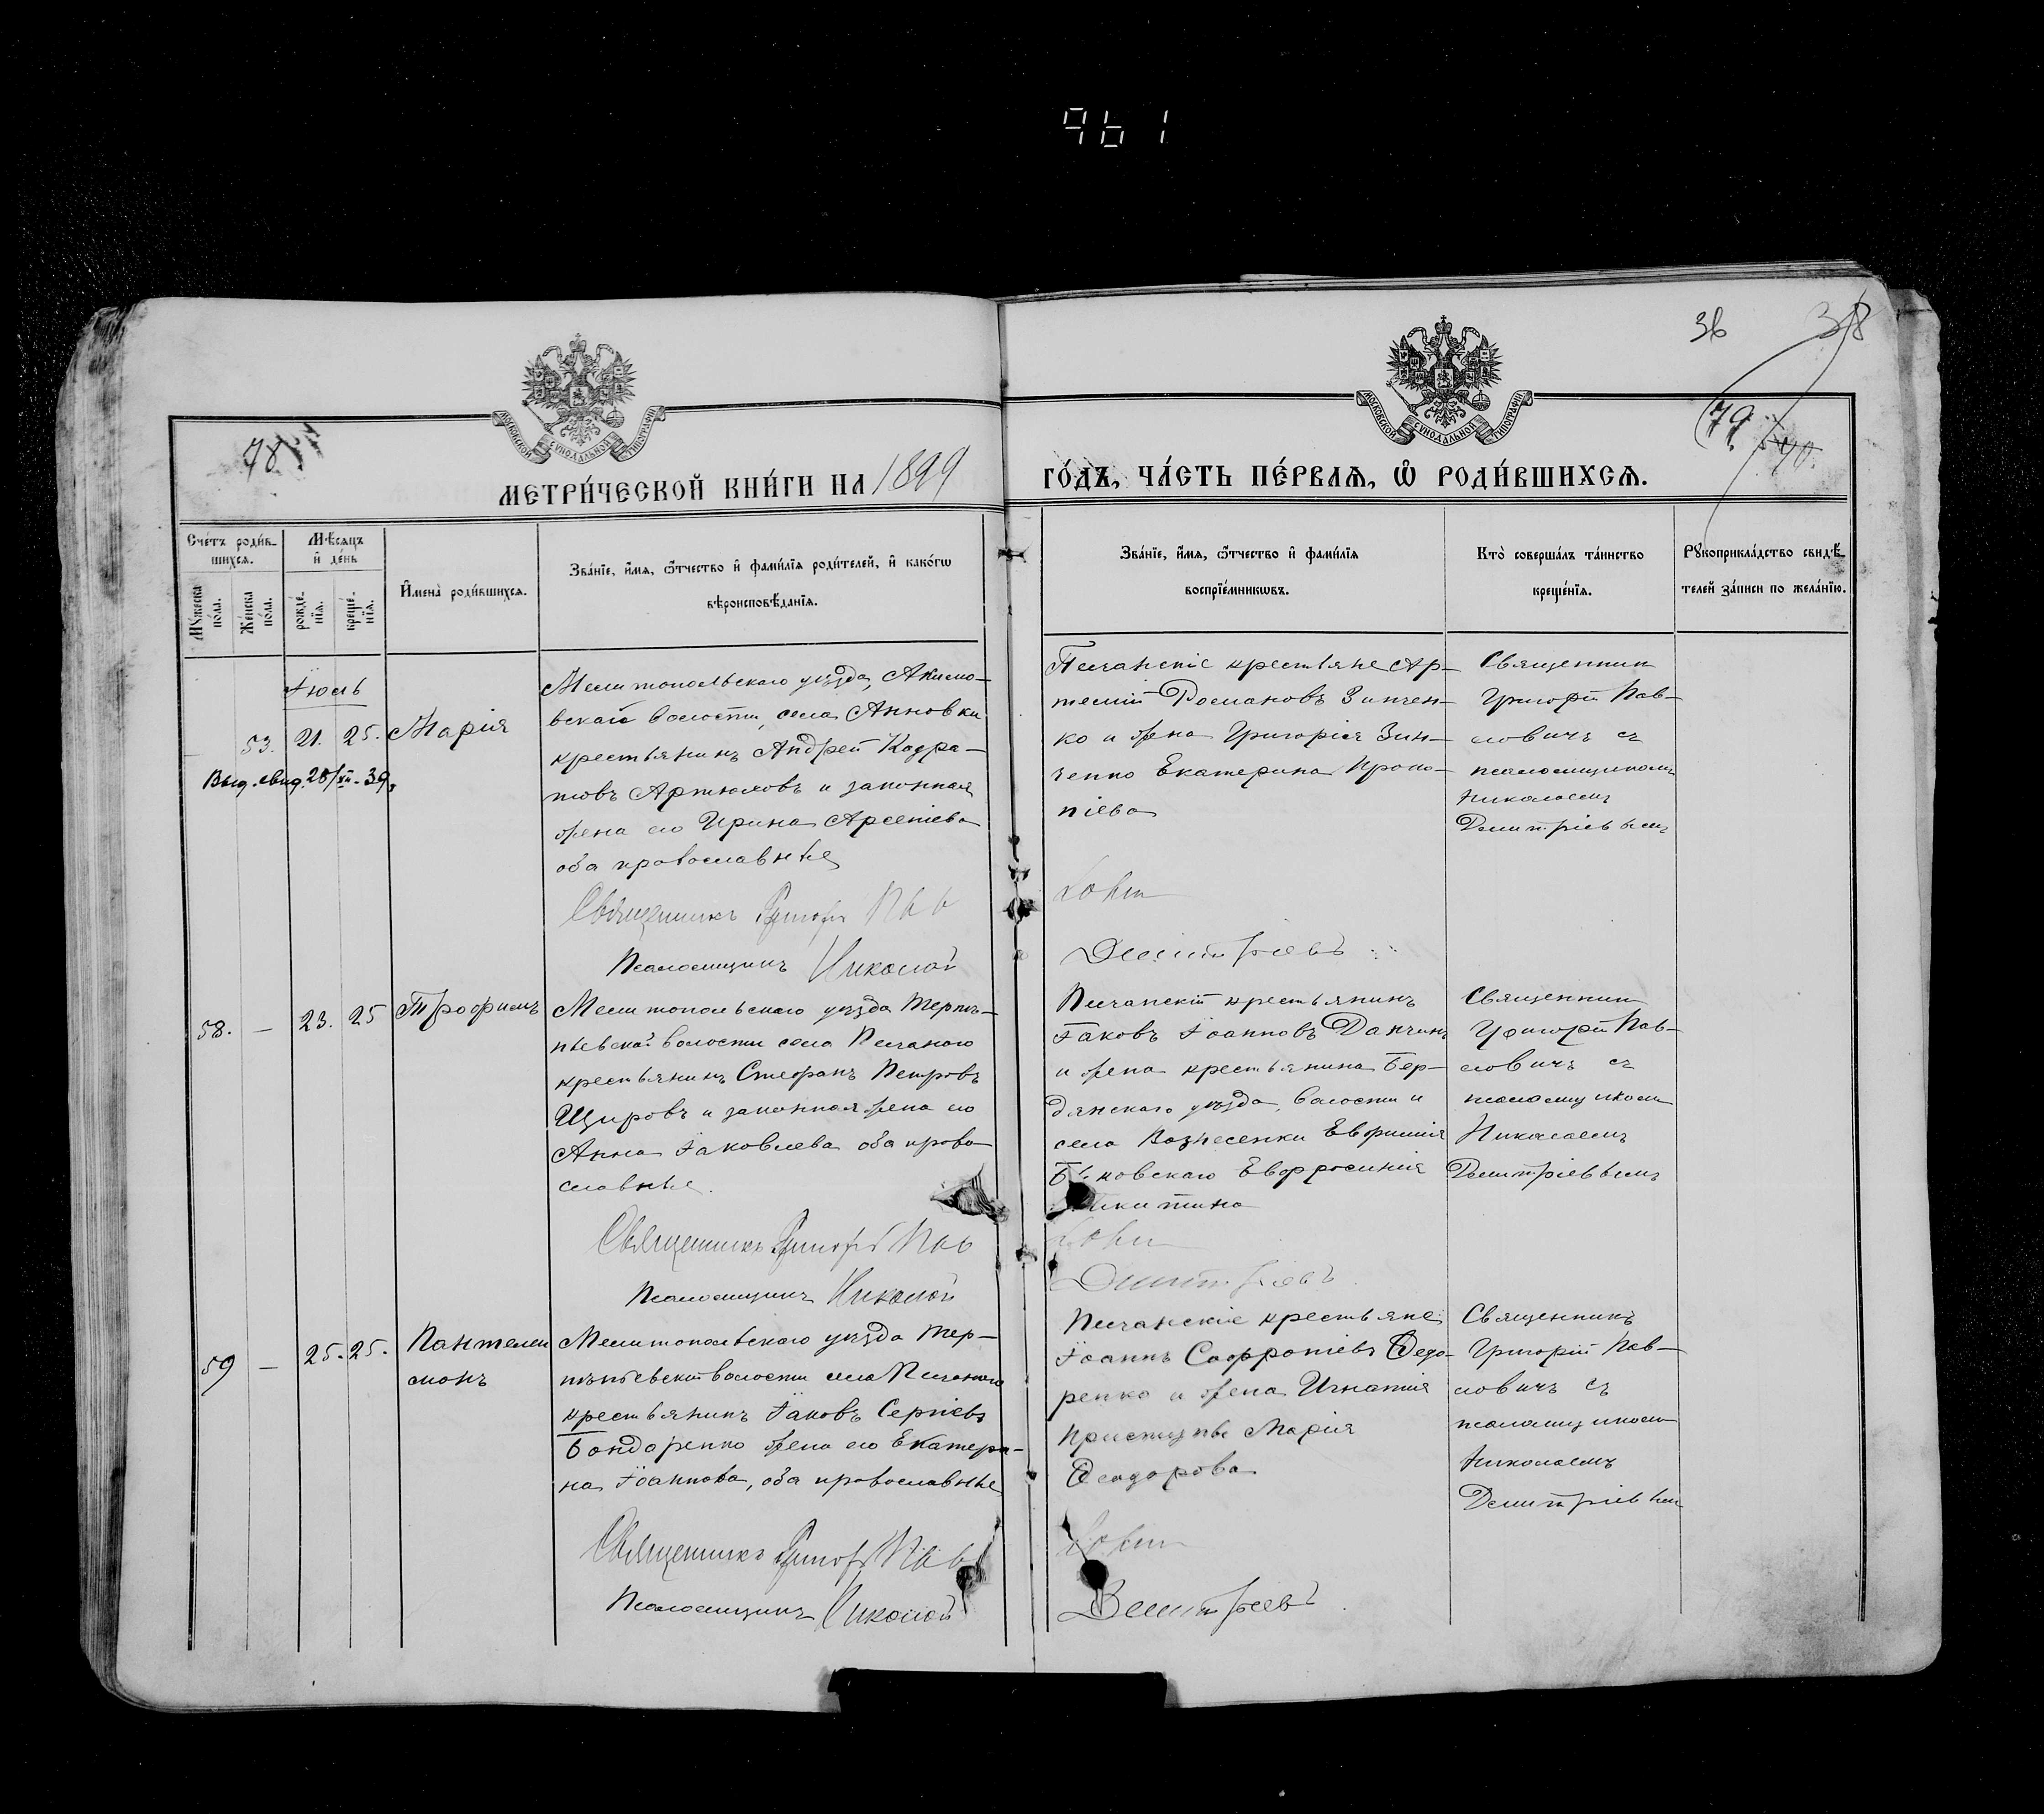 961
36
38
78
79
40.
МОСКОВСКОЙ СѴНОДАЛЬНОЙ ТИПОГРАФІИ
МОСКОВСКОЙ СѴНОДАЛЬНОЙ ТИПОГРАФІИ
МЕТРИ́ЧЕСКОЙ КНИ́ГИ НА 1899
ГО́ДЪ, ЧА́СТЬ ПЕ́РВАѦ, Ѽ РОДИ́ВШИХСѦ.
Сче́тъ роди́в-
шихсѧ.
Мꙋ́жеска
по́ла.
Же́нска
по́ла.
Мѣ́сѧцъ
и҆ де́нь
рожде́-
нїѧ.
креще́-
нїѧ.
И҆мена̀ роди́вшихсѧ.
Зва́нїе, и҆́мѧ, ѻ҆́тчество и҆ фами́лїѧ роди́телей, и҆ како́гѡ
вѣроисповѣ́данїѧ.
Зва́нїе, и҆́мѧ, ѻ҆́тчество и҆ фами́лїѧ
воспрїе́мникѡвъ.
Кто̀ соверша́лъ та́инство
креще́нїѧ.
Рꙋкоприкла́дство свидѣ́-
телей за́писи по жела́нїю.
Іюль
53. 21. 25. Марія
Выд. свид. 28/XII-39 г.
Мелитопольскаго уѣзда, Акимо-
вской волости, села Анновки
крестьянинъ Андрей Кодра-
товъ Артюховъ и законная
жена его Ирина Арсеніева
оба православные
Священникъ Григорій Пав
Псаломщикъ Николай
Песчанскіе крестьяне Ар-
темій Романовъ Зинчен-
ко и жена Григорія Зин-
ченко Екатерина Проко-
піева
ловичъ
Димитріевъ
Священник
Григорій Пав-
ловичъ съ
псаломщикомъ
Николаемъ
Димитріевымъ
58. — 23. 25 Трофимъ
Мелитопольскаго уѣзда Терпѣ-
ніевской волости села Песчаного
крестьянинъ Стефанъ Петровъ
Щировъ и законная жена его
Анна Іаковлева оба право
славные.
Священникъ Григорій Пав
Псаломщикъ Николай
Песчанскій крестьянинъ
Іаковъ Іоанновъ
и жена крестьянина Бер-
дянскаго уѣзда, волости и
села Вознесенки Евфимія
Евфросинія
Никитина
Димитріевъ
Священник
Григорій Пав-
ловичъ съ
псаломщикомъ
Николаемъ
Димитріевымъ
59 — 25. 25. Пантелеи
монъ
Мелитопольскаго уѣзда Тер-
пѣніевской волости села Песчаного
крестьянинъ Іаковъ Сергіевъ
Бондаренко жена его Екатери-
на Іоаннова, оба православные
Священникъ Григорій Пав
Псаломщикъ Николай
Песчанскіе крестьяне
Іоаннъ Софроніевъ Ѳедо-
ренко и жена Игнатія
Приступы Марія
Ѳеодорова
Димитріевъ
Священникъ
Григорій Пав-
ловичъ съ
псаломщикомъ
Николаемъ
Димитріевымъ